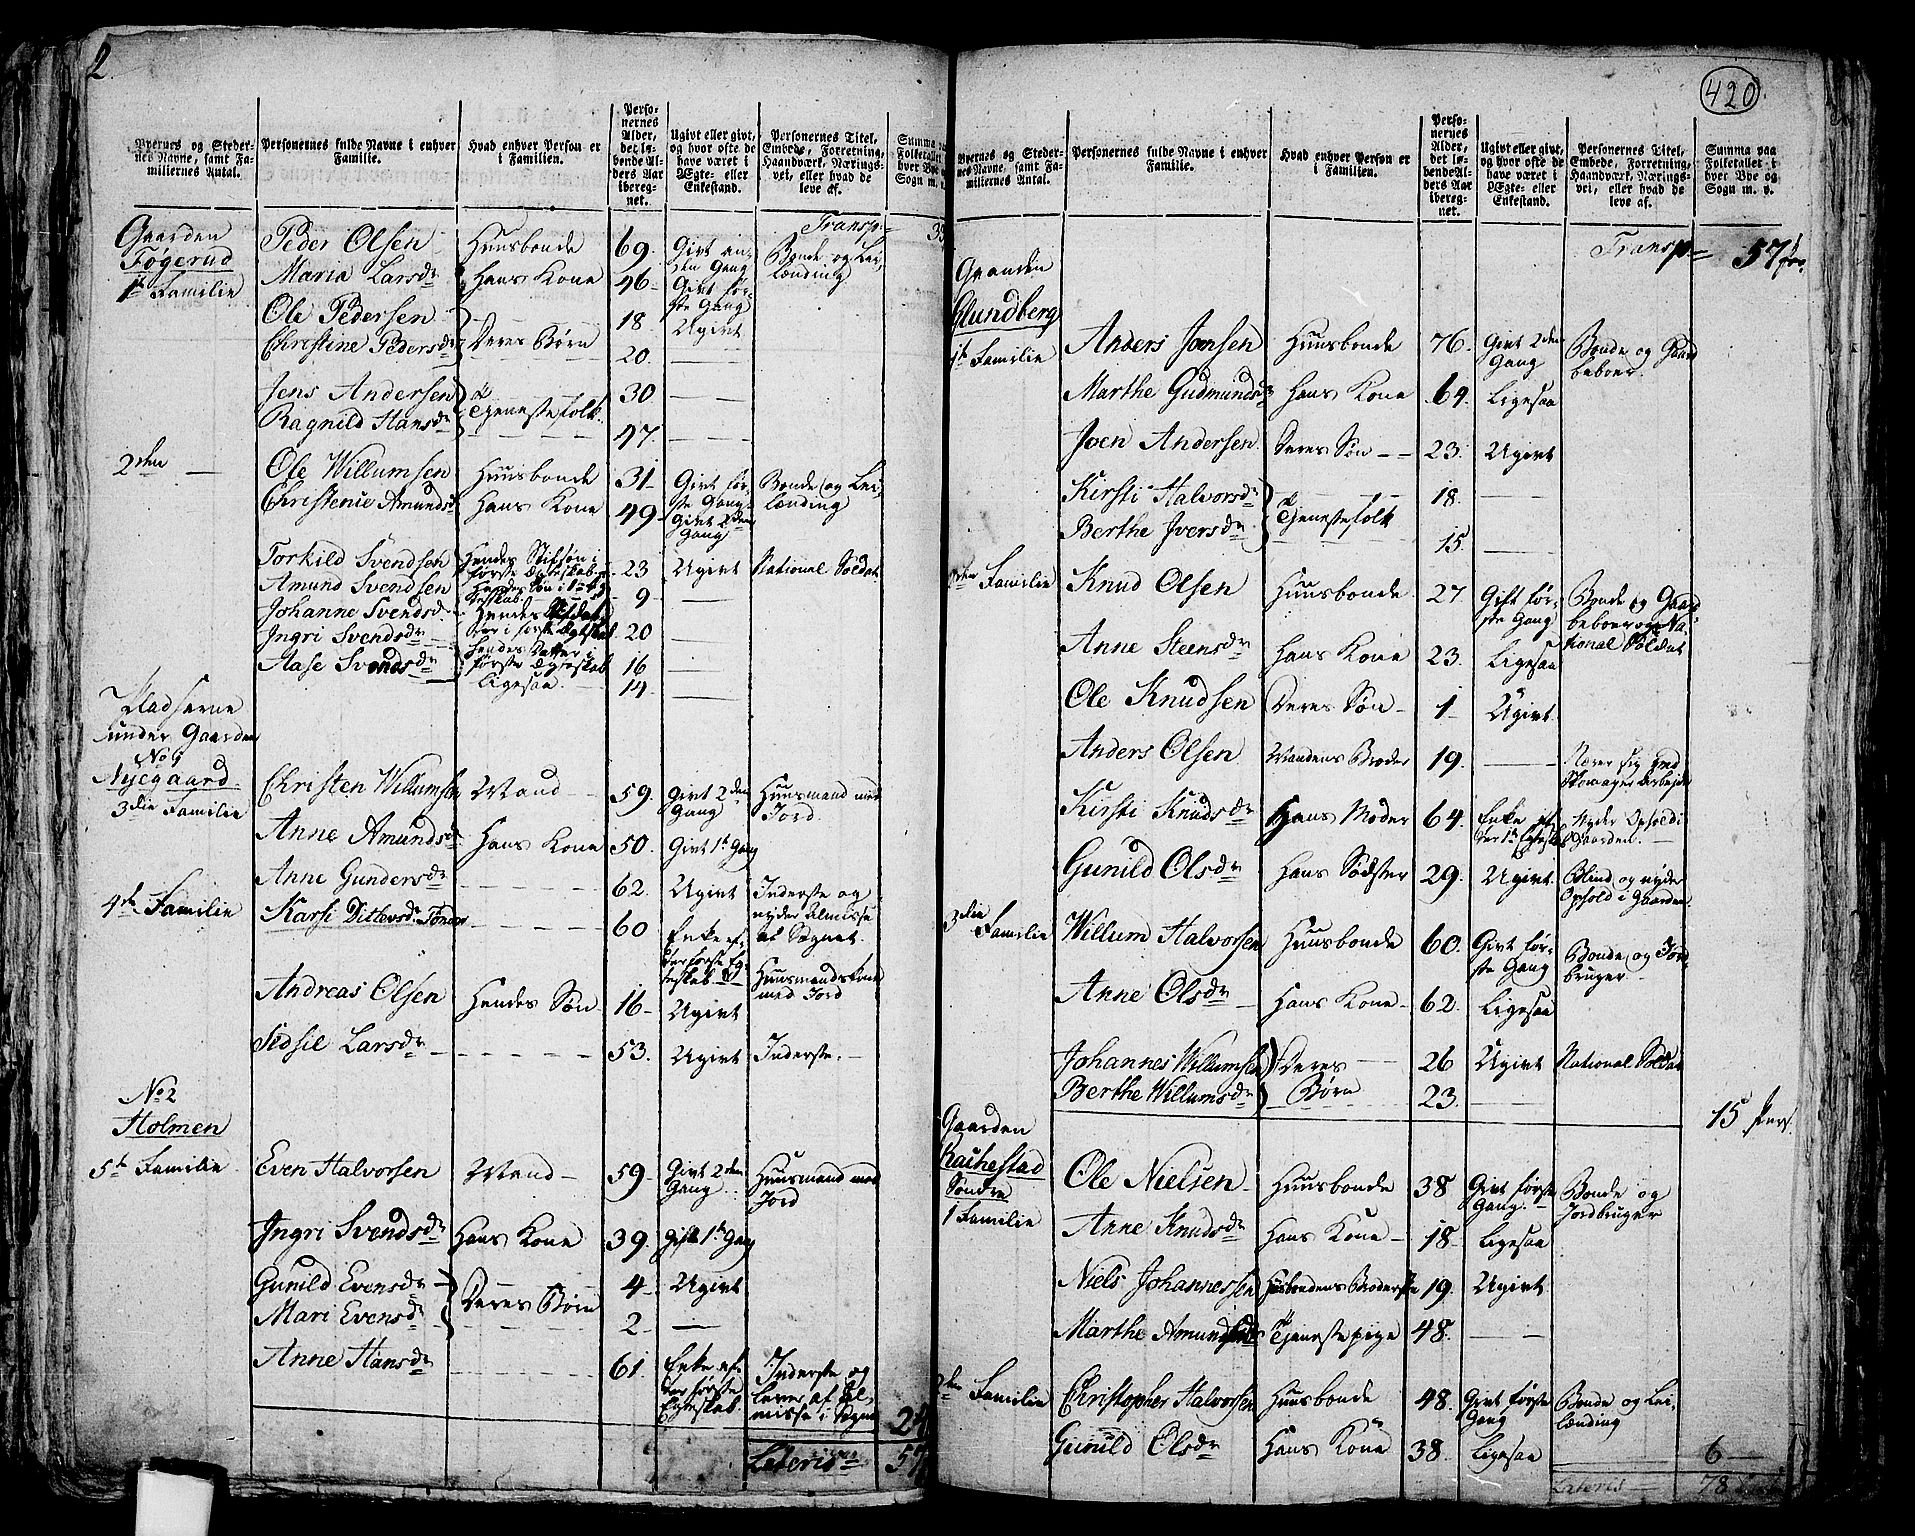 2
Byernes og Stedernes Navne, samt Familiernes Antal.
Personernes fulde Navne i enhver Familie.
Hvad enhver Person er i Familien.
Personernes Alder, det løbende Alders Aar iberegnet.
Ugivt eller givt, og hvor ofte de have været i Ægte- eller Enkestand.
Personernes Titel, Embede, Forretning, Haandværk, Næringsvei, eller hvad de leve af.
Transp.
Gaarden Fogerud
1te Familie
Peder Olsen Huusbonde 69. Givt anden Gang Bonde og Leilænding
Maria Larsdr Hans Kone 46 Givt første Gang
Ole Pedersen Deres Børn 18. Ugivt
Christine Pedersdr 20. —
Jens Andersen Tjenestefolk 30 —
Ragnild Hansdr 47. —
2den —
Ole Willumsen Huusbonde 31 Givt første Gang Bonde og Leilænding
Christenie Amundsdr Hans Kone 49 Givt 2den Gang
Torkild Svendsen Hendes Stifsøn i første Ægteskab 23 Ugivt National Soldat
Amund Svendsen 9 —
Johanne Svendsdr 20 —
Ingri Svendsdr Hendes Datter i første Ægteskab 16 —
Aase Svendsdr Ligesaa 14 —
Pladserne under Gaarden
Nyegaard
3die Familie
Christen Willumsen Mand 59. Givt 2den Gang Huusmand med Jord
Anne Amundsdr Hans Kone 50. Givt 1te Gang
Anne Gundersdr 62. Ugivt Inderste og nyder Almisse af Sognet
4de Familie
Karsi 60 Enke efter første Egteskab Huusmandskone med Jord
Andreas Olsen Hendes Søn 16 Ugivt
Sidsil Larsdr 53. Ugivt Inderste.
No 2
Holmen
5te Familie
Even Halvorsen Mand 59. Givt 2den Gang Huusmand med Jord
Ingri Svendsdr Hans Kone 39. Gift 1te Gang
Gunild Evensdr Deres Børn 4 Ugivt
Mari Evensdr 2 —
Anne Hansdr 61. Enke efter første Egteskab Inderste og lever af Almisse i Sognet
24
Lateris 57
420
Byernes og Stedernes Navne, samt Familiernes Antal.
Personernes fulde Navne i enhver Familie.
Hvad enhver Person er i Familien.
Personernes Alder, det løbende Alders Aar iberegnet.
Ugivt eller givt, og hvor ofte de have været i Ægte- eller Enkestand.
Personernes Titel, Embede, Forretning, Haandværk, Næringsvei, eller hvad de leve af.
Summa paa Folketallet i hver Bye og Sogn m. v.
Transp 57
Gaarden Glundberg
1te Familie
Anders Jonsen Huusbonde 76. Givt 2den Gang Bonde og Gaardbeboer
Marthe Gudmundsdr Hans Kone 64. Ligesaa
Joen Andersen Deres Søn 23. Ugivt
Kirsti Halvorsdr Tjenestefolk 18. —
Berthe Iversdr 15 —
2den Familie
Knud Olsen Huusbonde 27 Gift første Gang Bonde og Gaardbeboer og National Soldat
Anne Steensdr Hans Kone 23. Ligesaa
Ole Knudsen Deres Søn 1 Ugivt
Anders Olsen Mandens Broder 19. — Nærer sig med Skomager Arbejde
Kirsti Knudsdr Hans Moder 64. Enke efter 1te Egteskab Nyder Ophold i Gaarden.
Gunild Olsdr Hans Södster 29. Ugivt Blind og nyder Ophold i Gaarden
3die Familie
Willum Halvorsen Huusbonde 60. Givt første Gang Bonde og Jordbruger
Anne Olsdr Hans Kone 62. Ligesaa
Johannes Willumsen Deres Børn 26 Ugivt National Soldat
Berthe Willumsdr 23. —
15 Pers.
Gaarden
Søndre
1 Familie
Ole Nielsen Huusbonde 38 Givt første Gang. Bonde og Jordbruger
Anne Knudsdr Hans Kone 18. Ligesaa
Niels Johannessen 19. Ugivt
Marthe Tjenestepige 48. —
2den Familie
Christopher Halvorsen Huusbonde 48. Givt første Gang Bonde og Leilænding
Gunild Olsdr Hans Kone 38. Ligesaa
6
Lateris 78